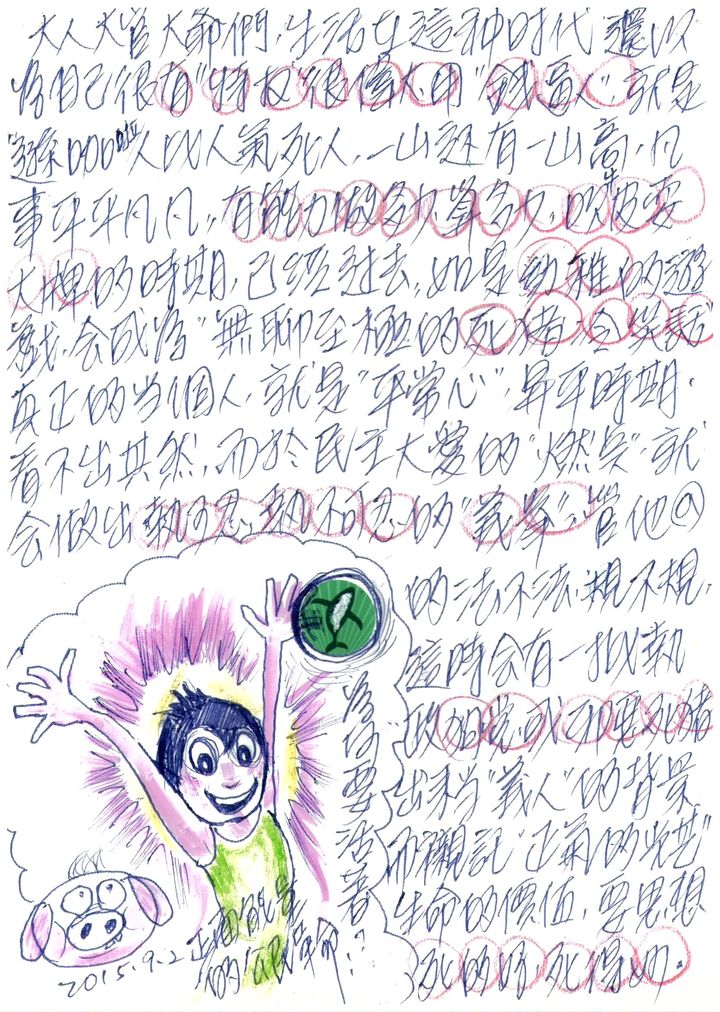 大人大官大爺們，生活在這种时代還以
為自己很有"特权"很偉大用"錢壓人"就是
遜000啦人比人氣死人，一山还有一山高，凡
事平平凡凡，有能力做多少算多少，的
大牌的時期，已經过去，如是幼稚的遊
戲，会成為"無聊至極的死人猪"会笑話
真正的当個人，就是"平常心"，昇平時期，
看不出其然，而於民主大愛的"燃 "就
会做出孰可忍孰不可忍的"義舉"，管他@
的法不法，規不規，
這時会有一批執
政 党或
出來当"義人"的背景
而襯 "正氣的光芒"
生命的價值，要思想
死的好死得妙。
為何要活著!?
2015.9.2 正面能量
的 革命